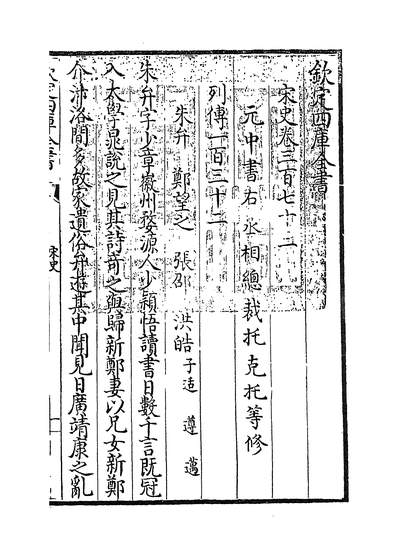 欽定四庫全書
宋史卷三百七十三
元中書右丞相總裁托克托等修
列傳一百三十二
朱弁 鄭望之 張邵 洪皓子适 遵 邁
朱弁字少章徽州婺源人少穎悟讀書日數千言既冠
入太學晁說之見其詩奇之與歸新鄭妻以兄女新鄭
介汴洛間多故家遺俗弁遊其中聞見日廣靖康之亂
欽定四庫全書
宋史